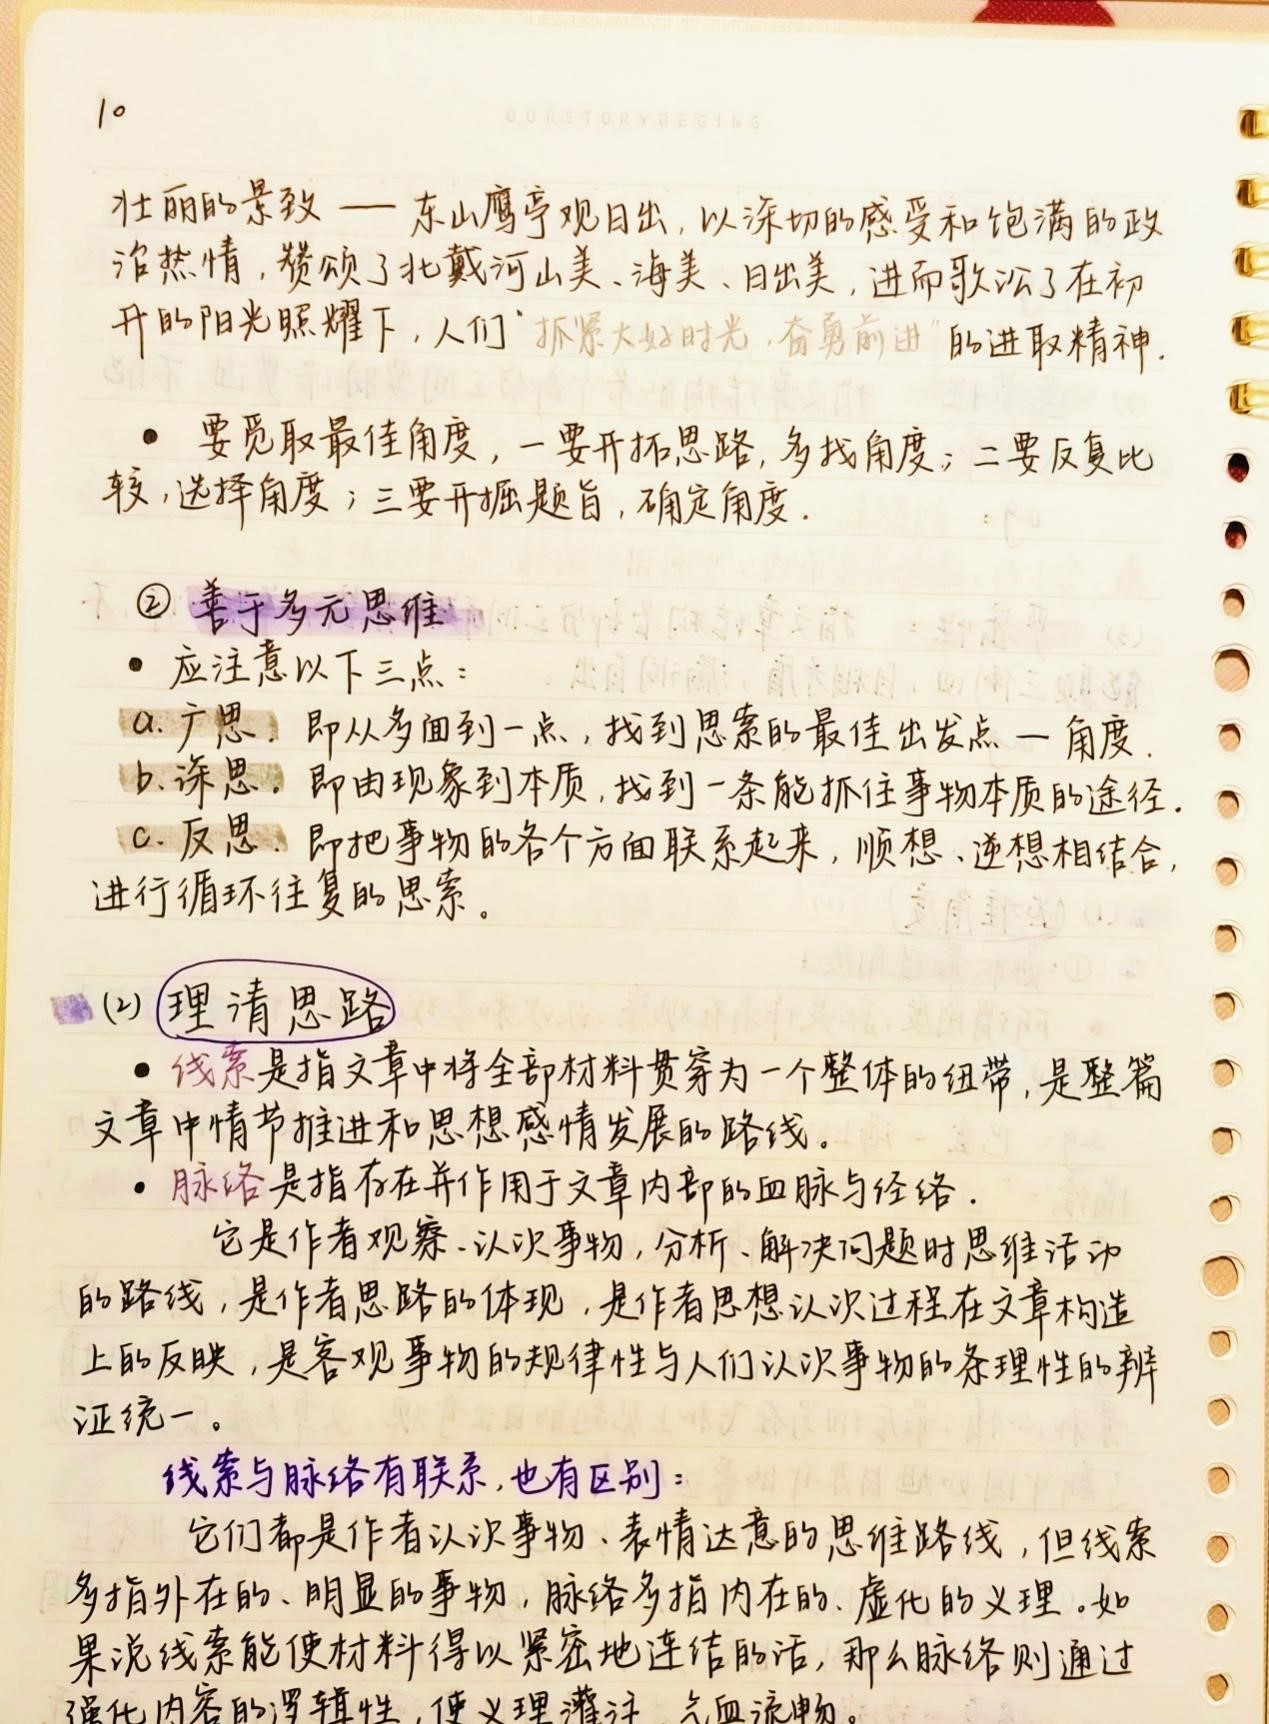 10
OURSTORYBEGINS
壮丽的景致 —— 东山鹰亭观日出，以深切的感受和饱满的政
治热情，赞颂了北戴河山美、海美、日出美，进而歌讼了在初
开的阳光照耀下，人们"抓紧大好时光，奋勇前进"的进取精神.
• 要觅取最佳角度，一要开拓思路，多找角度；二要反复比
较，选择角度；三要开掘题旨，确定角度.
② 善于多元思维
• 应注意以下三点：
a. 广思. 即从多面到一点，找到思索的最佳出发点 — 角度.
b. 深思. 即由现象到本质，找到一条能抓住事物本质的途径.
c. 反思. 即把事物的各个方面联系起来，顺想、逆想相结合，
进行循环往复的思索。
(2) 理清思路
• 线索是指文章中将全部材料贯穿为一个整体的纽带，是整篇
文章中情节推进和思想感情发展的路线。
• 脉络是指存在并作用于文章内部的血脉与经络.
它是作者观察、认识事物，分析、解决问题时思维活动
的路线，是作者思路的体现，是作者思想认识过程在文章构造
上的反映，是客观事物的规律性与人们认识事物的条理性的辨
证统一。
线索与脉络有联系，也有区别：
它们都是作者认识事物、表情达意的思维路线，但线索
多指外在的、明显的事物，脉络多指内在的、虚化的义理。如
果说线索能使材料得以紧密地连结的话，那么脉络则通过
强化内容的逻辑性，使义理灌注，气血流畅。